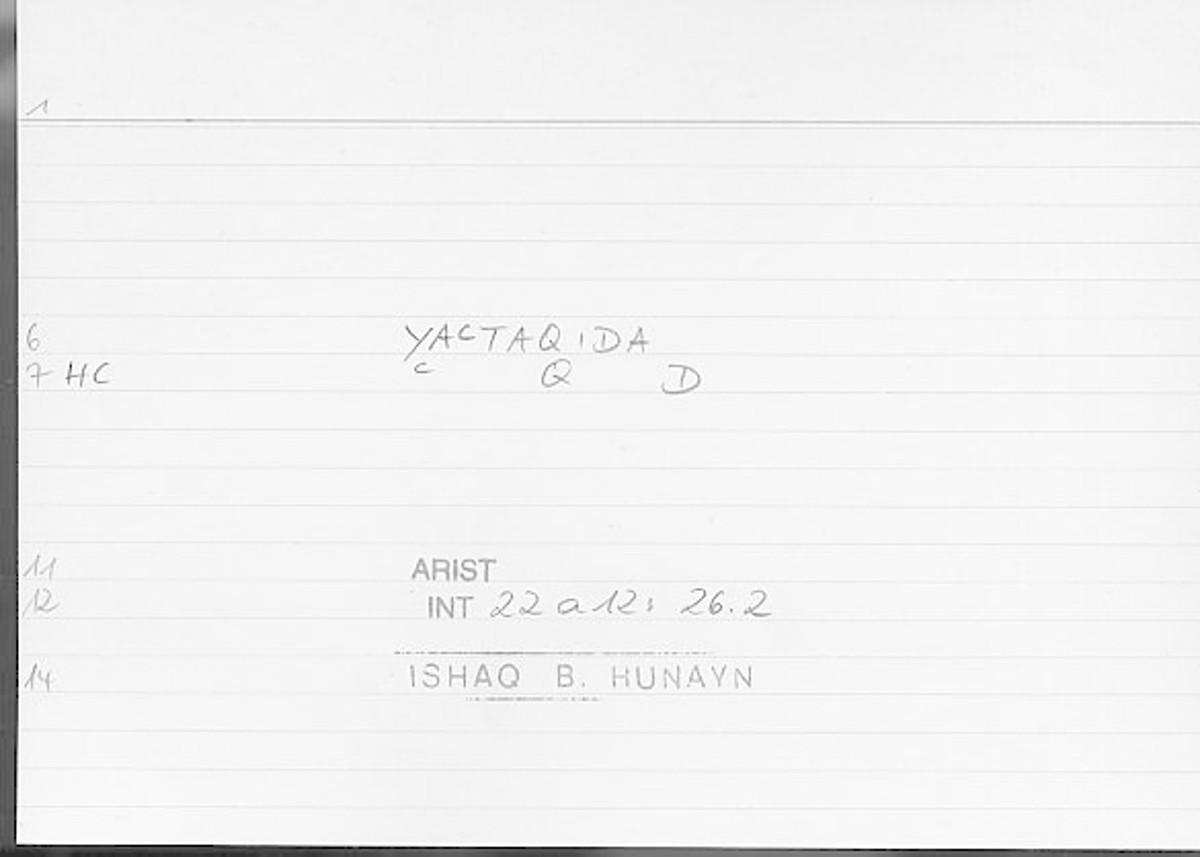 1
6 YACTAQIDA
7 HC C Q D
11 ARIST
12 INT 22 a 12: 26.2
14 ISHAQ B. HUNAYN